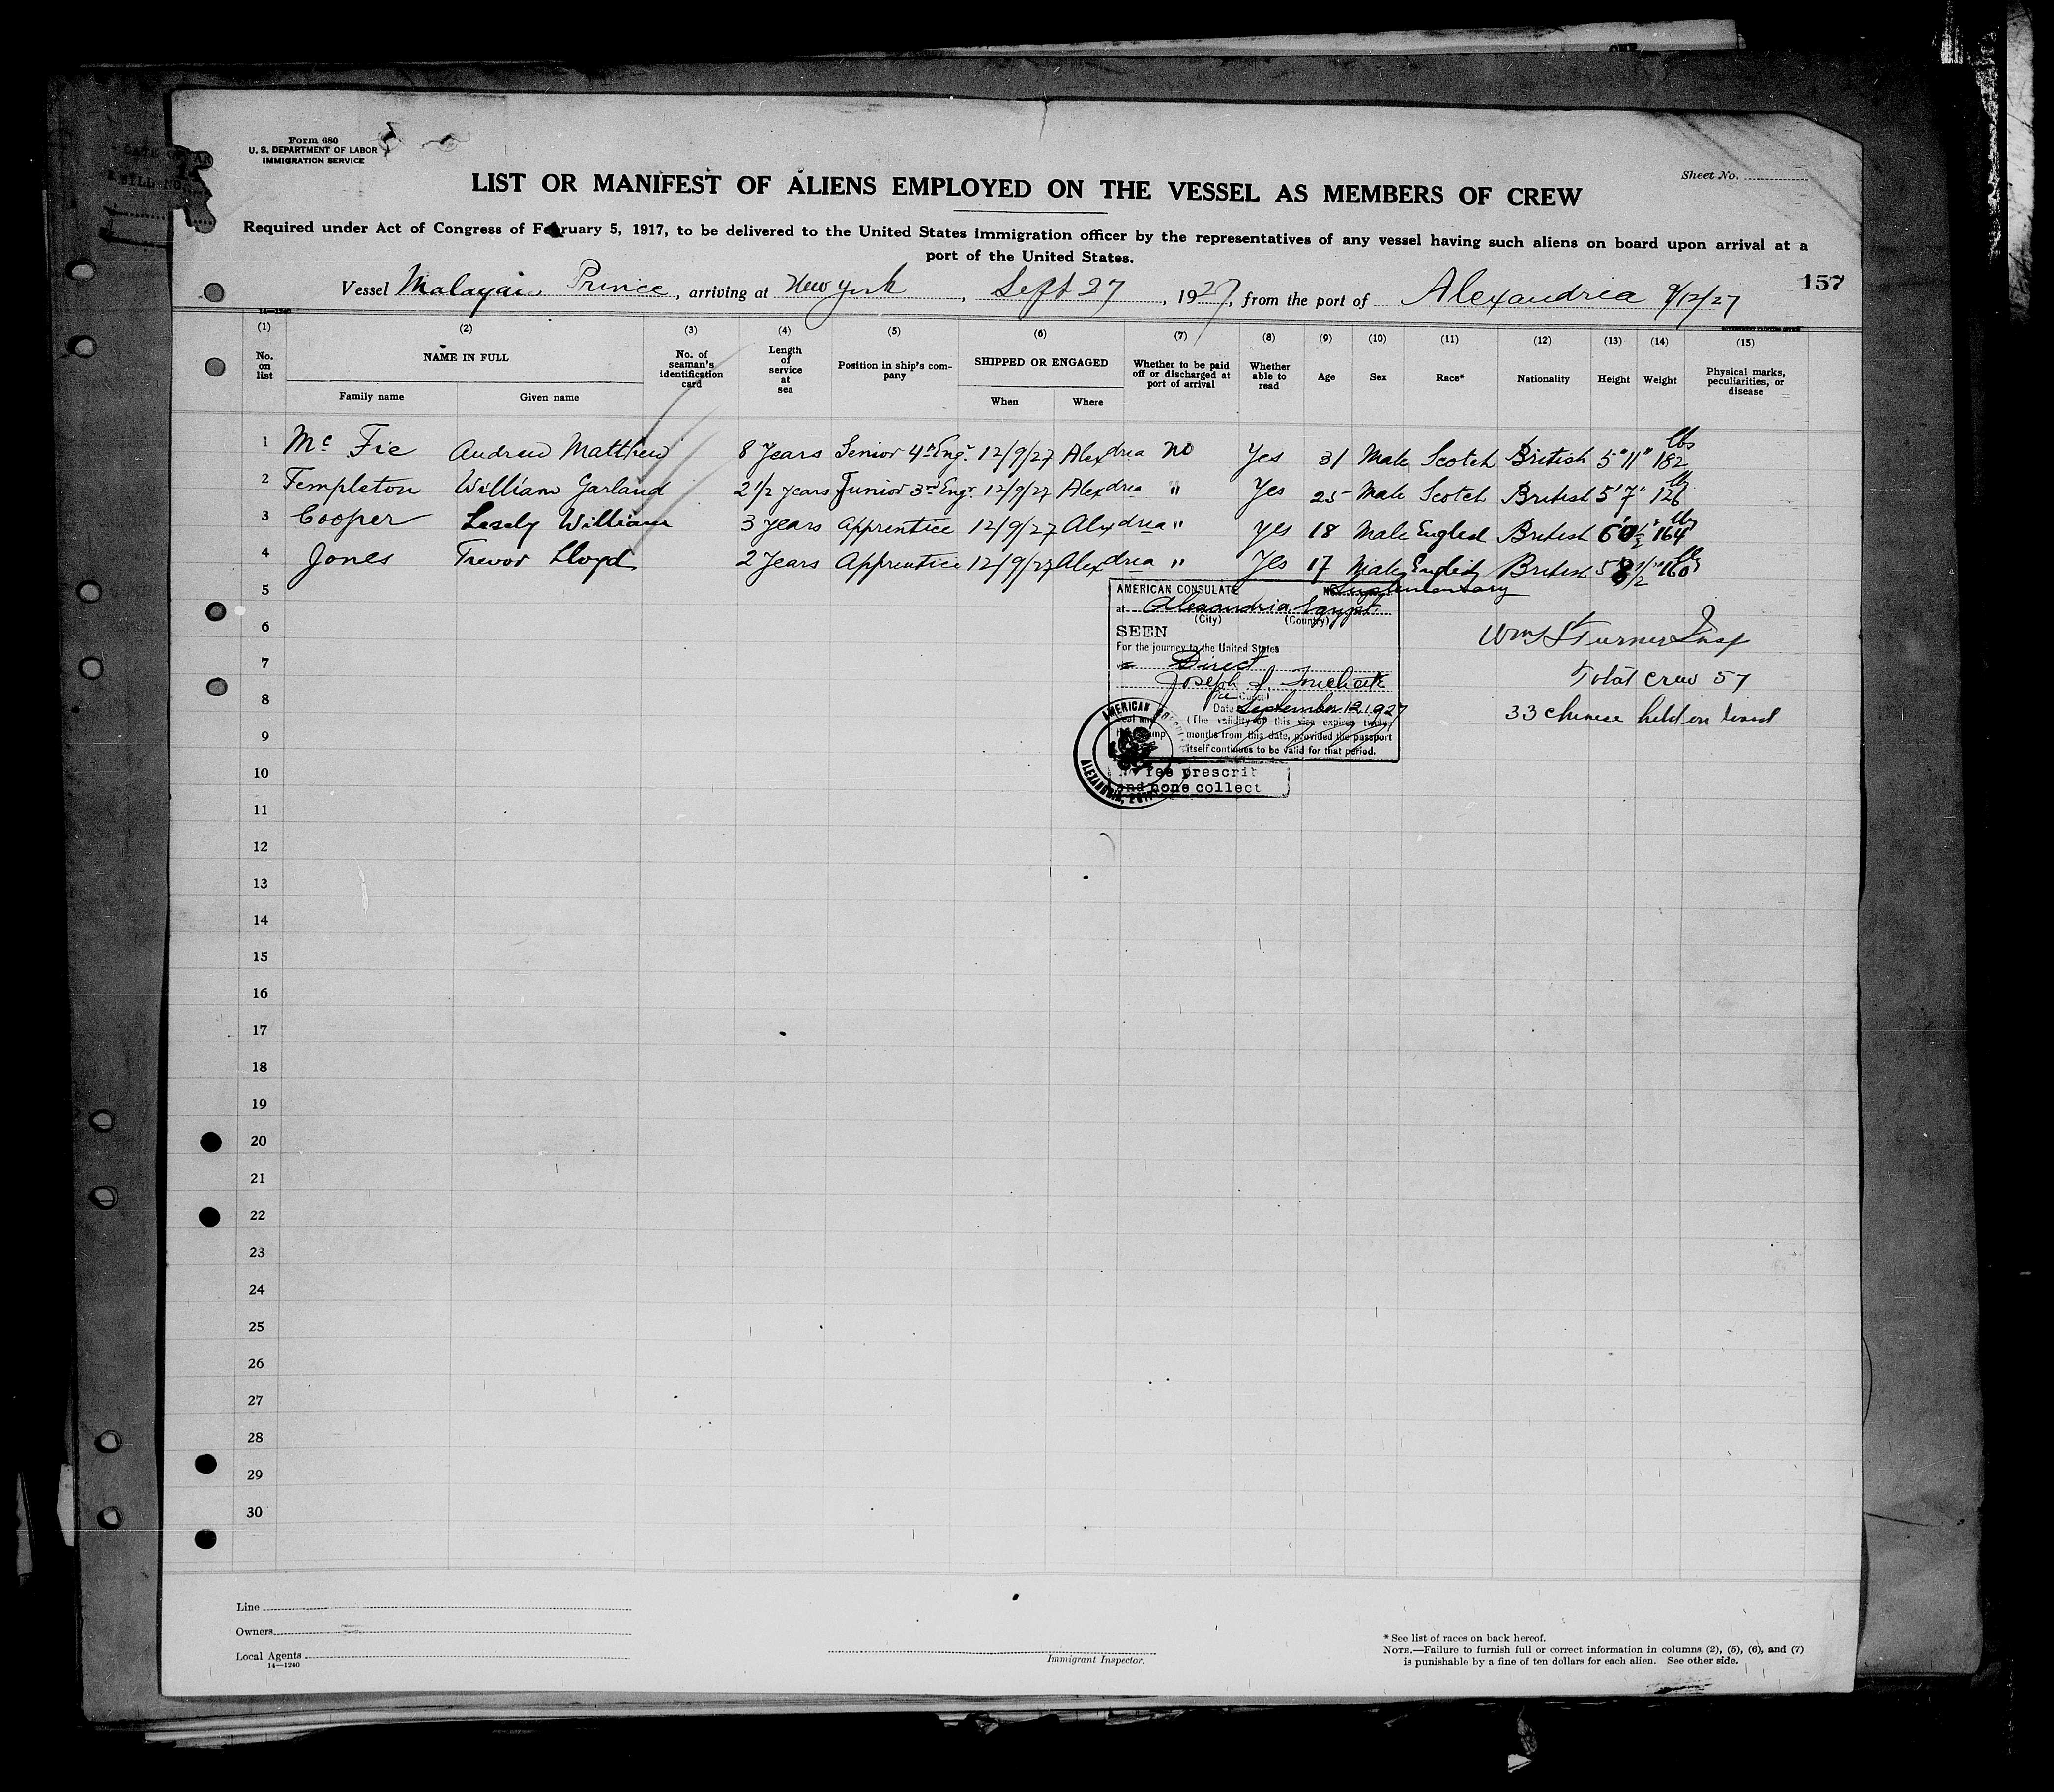 Form 680
U. S. DEPARTMENT OF LABOR
IMMIGRATION SERVICE
Sheet No.
LIST OR MANIFEST OF ALIENS EMPLOYED ON THE VESSEL AS MEMBERS OF CREW
Required under Act of Congress of February 5, 1917, to be delivered to the United States immigration officer by the representatives of any vessel having such aliens on board upon arrival at a
port of the United States.
157
Vessel Malayan Prince, arriving at New York, Sept 27, 1927, from the port of Alexandria 9/12/27
14—1240
(1) (2) (3) (4) (5) (6) (7) (8) (9) (10) (11) (12) (13) (14) (15)
No. on list NAME IN FULL No. of seaman's identification card Length of service at sea Position in ship's company SHIPPED OR ENGAGED Whether to be paid off or discharged at port of arrival Whether able to read Age Sex Race* Nationality Height Weight Physical marks, peculiarities, or disease
Family name Given name When Where
1 Mc Fie Andrew Matthew 8 Years Senior 4th Engr. 12/9/27 Alexdria no Yes 31 Male Scotch British 5"11" 182 lbs
2 Templeton William Garland 2 1/2 years Junior 3rd Engr 12/9/27 Alexdria " Yes 25 Male Scotch British 5'7" 126 lbs
3 Cooper Lesely William 3 years Apprentice 12/9/27 Alexdria " yes 18 Male English British 164 lbs
4 Jones Trevor Lloyd 2 Years Apprentice 12/9/27 Alexdria " Yes 17 Male English British 5 8 1/2" 160 lbs
5
6
7
8
9
10
11
12
13
14
15
16
17
18
19
20
21
22
23
24
25
26
27
28
29
30
AMERICAN CONSULATE No. Supplementary
at Alexandria, Egypt.
(City) (Country)
SEEN
For the journey to the United States
via Direct
Joseph
Vice Consul
Date September 12, 1927
(The validity of this visa expires twelve
months from this date, provided the passport
itself continues to be valid for that period.
AMERICAN
ALEXANDRIA, EGYPT
No fee prescrib
and none collect
Wm Turner
Total crew 57
33 chinese held on board
Line
Owners
Local Agents
14—1240
Immigrant Inspector.
* See list of races on back hereof.
NOTE.—Failure to furnish full or correct information in columns (2), (5), (6), and (7)
is punishable by a fine of ten dollars for each alien. See other side.